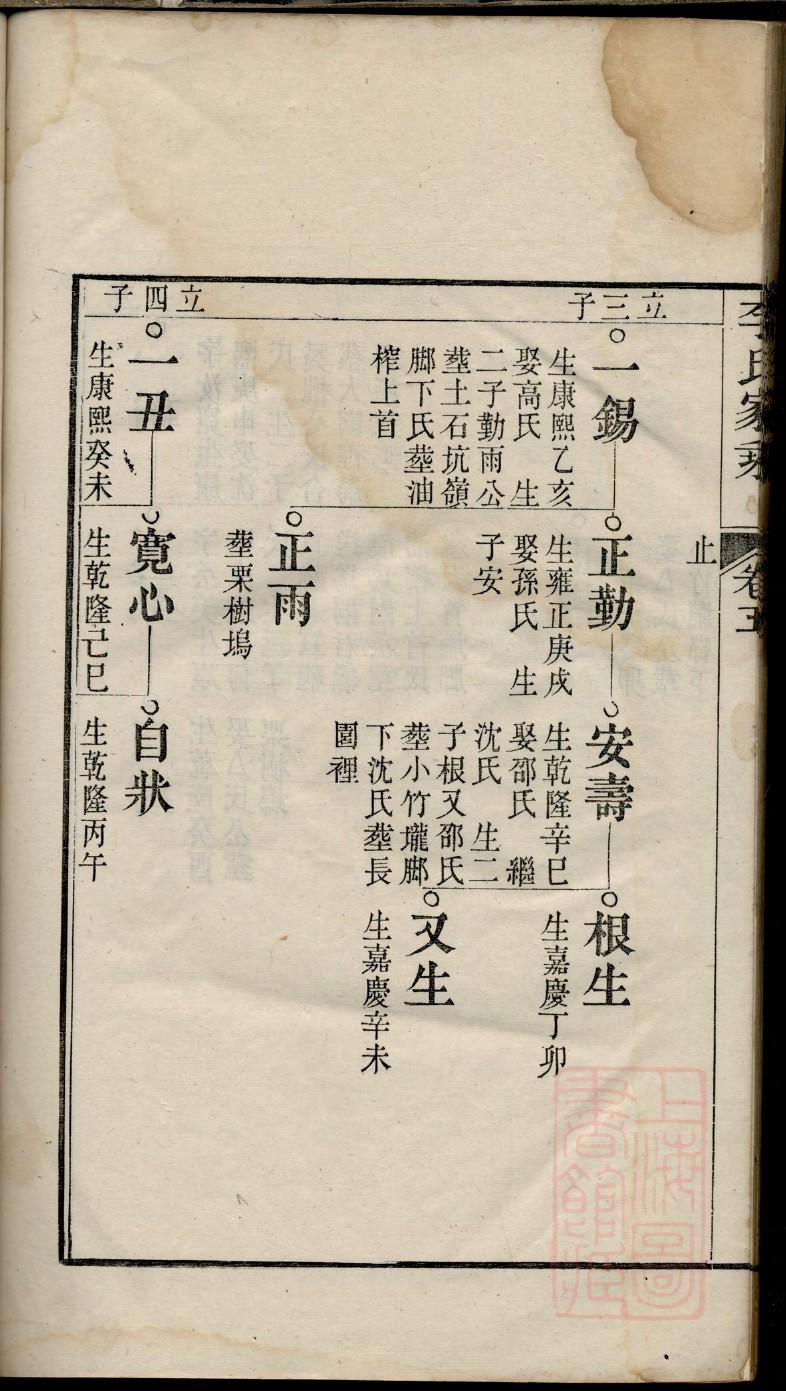 李氏家乘
卷五
止
立三子
一錫
生康熙乙亥
娶高氏 生
二子勤雨公
塟土石坑嶺
脚下氏塟油
榨上首
正勤
生雍正庚戌
娶孫氏 生
子安
安壽
生乾隆辛巳
娶邵氏 繼
沈氏 生二
子根又邵氏
塟小竹壠脚
下沈氏塟長
園裡
根生
生嘉慶丁卯
又生
生嘉慶辛未
正雨
塟栗樹塢
立四子
一丑
生康熙癸未
寛心
生乾隆己巳
自狀
生乾隆丙午
上海圖
書館藏